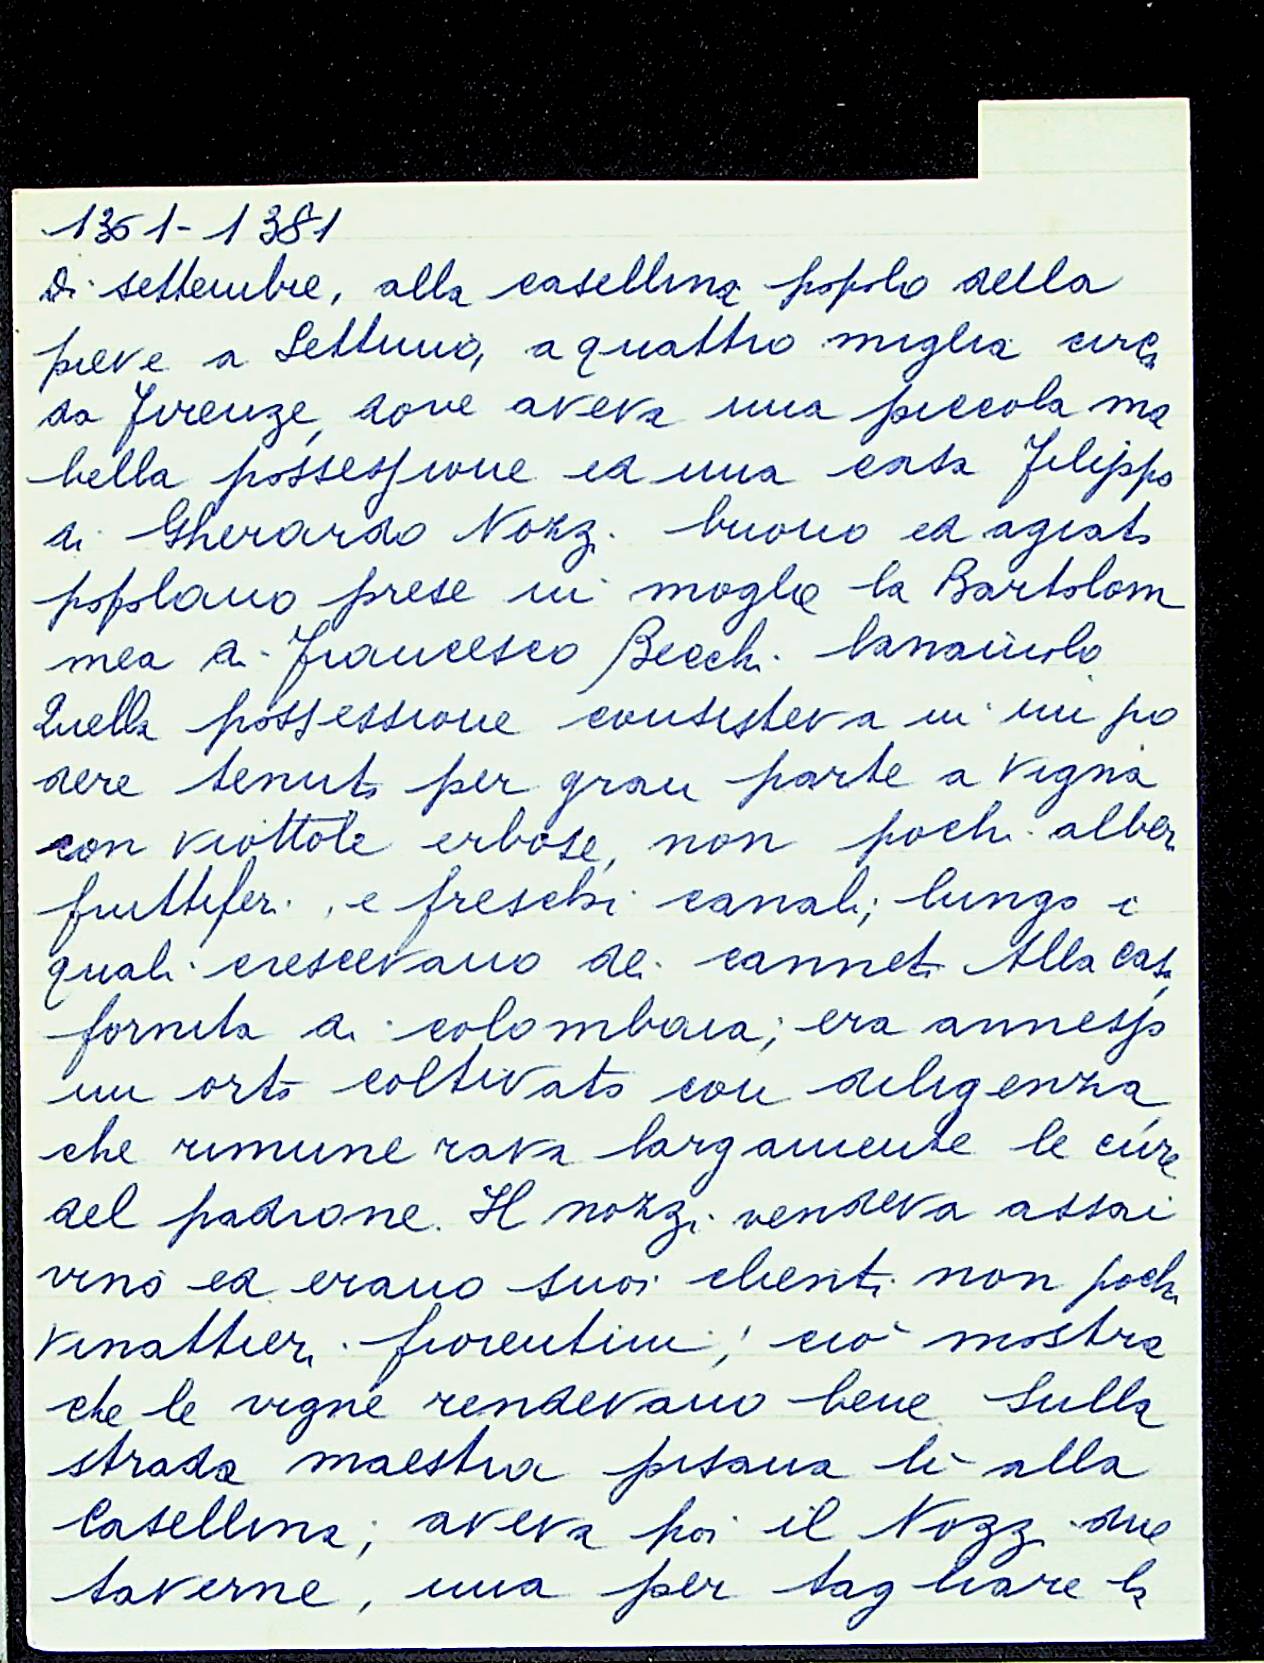 1351-1381
Di settembre, alla casellina popolo della
pieve a Settimo, a quattro miglia circa
da Firenze, dove aveva una piccola ma
bella possessione ed una casa Filippo
di Gherardo Nozzi buono ed agiato
popolano prese in moglie la Bartolom
mea di Francesco Becchi lanaiuolo
Quella possessione consisteva in un po
dere tenuto per gran parte a vigna
con viottole erbose, non pochi alberi
fruttiferi, e freschi canali; lungo i
quali crescevano dei canneti Alla casa
fornita di colombaia; era annesso
un orto coltivato con diligenza
che rimune rava largamente le cure
del padrone. Il nozzi vendeva assai
vino ed erano suoi clienti non pochi
vinattieri fiorentini; ciò mostra
che le vigne rendevano bene Sulla
strada maestra pisana lì alla
Casellina; aveva poi il Nozzi due
taverne, una per tagliare la